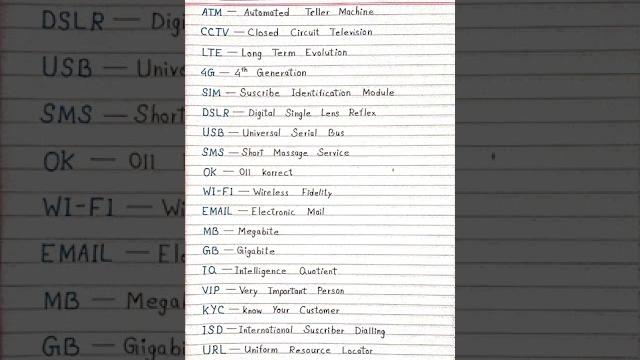 ATM — Automated Teller Machine
CCTV — Closed Circuit Television
LTE — Long Term Evolution
4G — 4th Generation
SIM — Suscribe Identification Module
DSLR — Digital Single Lens Reflex
USB — Universal Serial Bus
SMS — Short Massage Service
OK — Oll Korrect
WI-FI — Wireless Fidelity
EMAIL — Electronic Mail
MB — Megabite
GB — Gigabite
IQ — Intelligence Quotient
VIP — Very Important Person
KYC — Know Your Customer
ISD — International Suscriber Dialling
URL — Uniform Resource Locator
DSLR — Dig
USB — Unive
SMS — Short
OK — Oll
WI-FI — Wi
EMAIL — Ele
MB — Mega
GB — Gigabi